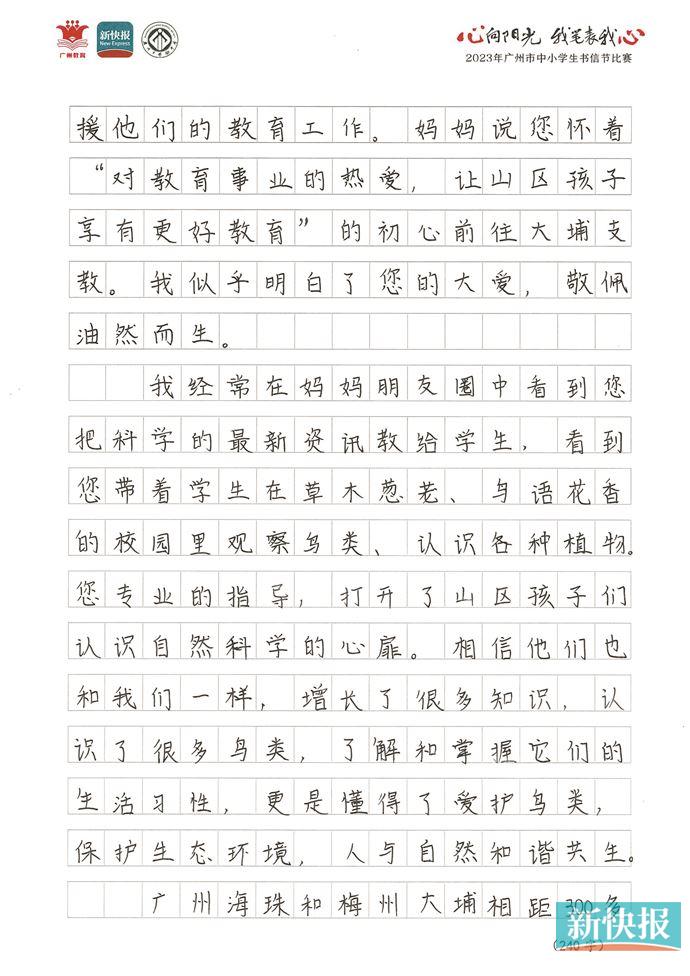 广州教育
新快报
New Express
心向阳光 我笔表我心
2023年广州市中小学生书信节比赛
援他们的教育工作。妈妈说您怀着
“对教育事业的热爱，让山区孩子
享有更好教育”的初心前往大埔支
教。我似乎明白了您的大爱，敬佩
油然而生。
我经常在妈妈朋友圈中看到您
把科学的最新资讯教给学生，看到
您带着学生在草木葱茏、鸟语花香
的校园里观察鸟类、认识各种植物。
您专业的指导，打开了山区孩子们
认识自然科学的心扉。相信他们也
和我们一样，增长了很多知识，认
识了很多鸟类，了解和掌握它们的
生活习性，更是懂得了爱护鸟类，
保护生态环境，人与自然和谐共生。
广州海珠和梅州大埔相距300多
新快报
(240字)